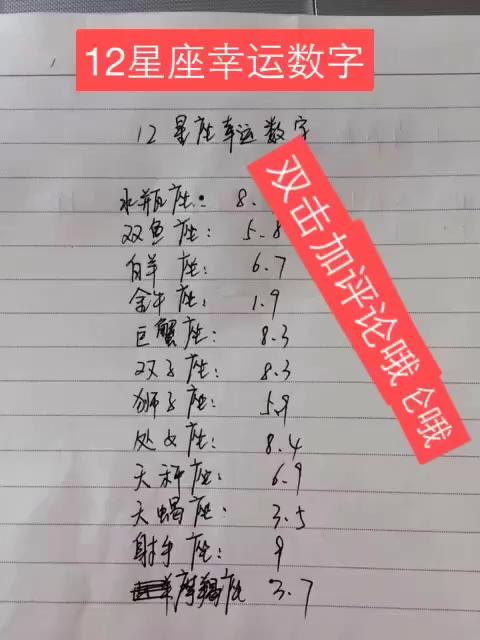 12星座幸运数字
12星座幸运数字
双击加评论哦
仑哦
水瓶座: 8.
双鱼座: 5.8
白羊座: 6.7
金牛座: 1.9
巨蟹座: 8.3
双子座: 8.3
狮子座: 5.9
处女座: 8.4
天秤座: 6.9
天蝎座: 3.5
射手座: 9
摩羯座 3.7